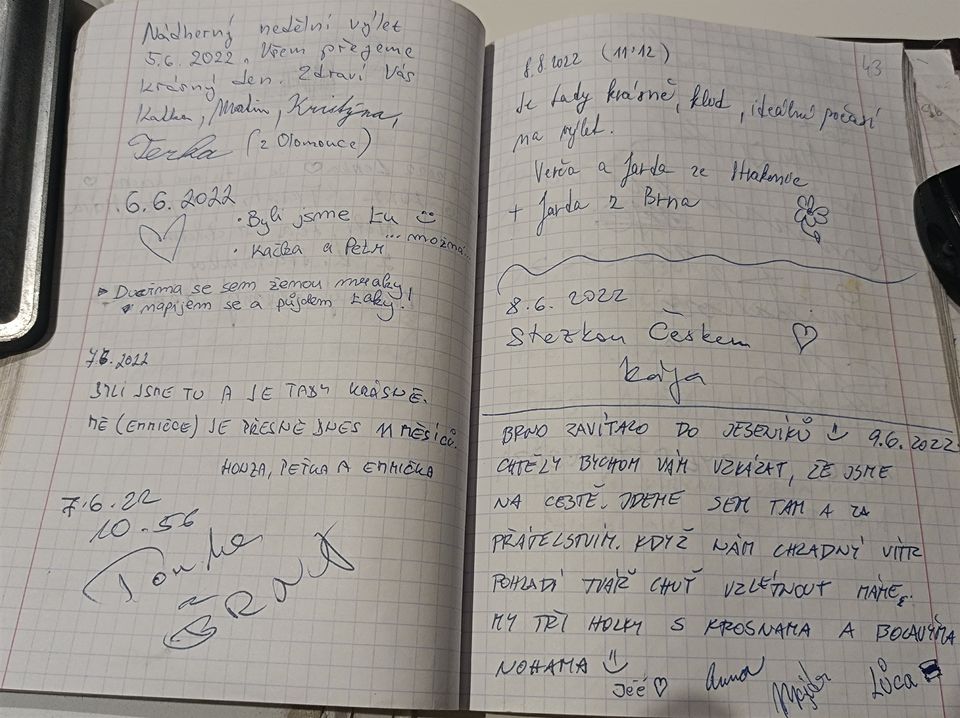 Nádherný nedělní výlet
5.6. 2022. Všem přejeme
krásný den. Zdraví Vás
Katka, Martin, Kristýna,
Terka (z Olomouce)
6.6. 2022
• Byli jsme tu
• Kačka a Petr ... možná...
Dveřma se sem ženou mraky,
napijem se a půjdem taky!
7.6. 2022
BYLI JSME TU A JE TADY KRÁSNĚ.
MĚ (EMMIČCE) JE PŘESNĚ DNES 11 MĚSÍCŮ.
HONZA, PEŤKA A EMMIČKA
7.6.22
10.56
43
8.8.2022 (11:12)
Je tady krásně, klid, ideální počasí
na výlet.
Verča a Jarda ze Strakonic
+ Jarda z Brna
8.6. 2022
Stezkou Českem
Kája
BRNO ZAVÍTALO DO JESENÍKŮ 9.6.2022
CHTĚLY BYCHOM VÁM VZKÁZAT, ŽE JSME
NA CESTĚ. JDEME SEM TAM A ZA
PŘÁTELSTVÍM. KDYŽ NÁM CHLADNÝ VÍTR
POHLADÍ TVÁŘ CHUŤ VZLÉTNOUT MÁME.
MY TŘI HOLKY S KROSNAMA A BOLAVÝMA
NOHAMA
Jéé Anna Lůca